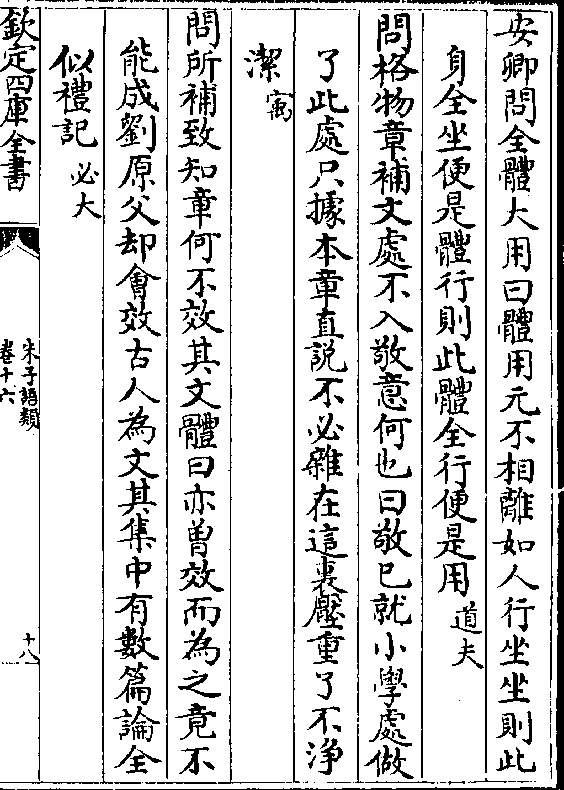 安卿問全體大用曰體用元不相離如人行坐坐則此
身全坐便是體行則此體全行便是用道夫
問格物章補文處不入敬意何也曰敬已就小學處做
了此處只據本章直說不必雜在這裏壓重了不浄
潔㝢
問所補致知章何不效其文體曰亦曽效而為之竟不
能成劉原父却會效古人為文其集中有數篇論全
似禮記必大
欽定四庫全書
朱子語類
卷十六
十八